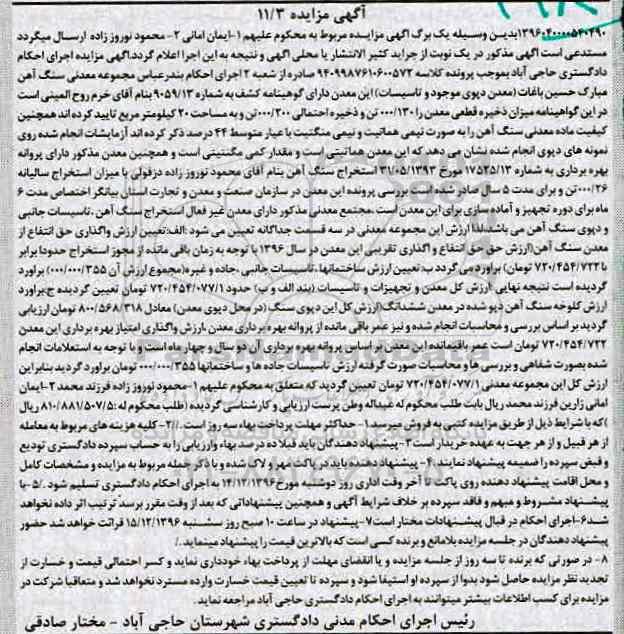 آگهی مزایده ۱۱/۳
۱۳۹۶۰۴۰۰۰۰۵۳۰۴۹۰بدین وسیله یک برگ آگهی مزایده مربوط به محکوم علیهم ۱-ایمان امانی ۲- محمود نوروز زاده ارسال میگردد
مستدعی است آگهی مذکور در یک نوبت از جراید کثیر الانتشار یا محلی آگهی و نتیجه به این اجرا اعلام گردد.آگهی مزایده اجرای احکام
دادگستری حاجی آباد بموجب پرونده کلاسه ۹۴۰۹۹۸۷۶۱۰۶۰۰۵۷۲ صادره از شعبه ۲ اجرای احکام بندرعباس مجموعه معدنی سنگ آهن
مبارک حسین باغات (معدن دپوی موجود و تاسیسات) این معدن دارای گوهینامه کشف به شماره ۹۰۵۹/۱۳ بنام آقای خرم روح المینی است
در این گواهینامه میزان ذخیره قطعی معدن را ۰۰۰/۱۳۰ تن و ذخیره احتمالی ۰۰۰/۲۰۰تن و به مساحت ۲۰ کیلومتر مربع تایید کرده اند همچنین
کیفیت ماده معدنی سنگ آهن را به صورت نیمی هماتیت و نیمی منگتیت با عیار متوسط ۴۴ درصد ذکر کرده اند آزمایشات انجام شده روی
نمونه های دپوی انجام شده نشان می دهد که این معدن هماتیتی است و مقدار کمی مگنتیتی است و همچنین معدن مذکور دارای پروانه
بهره برداری به شماره ۱۷۵۲۵/۱۳ مورخ ۳۱/۰۵/۱۳۹۳ استخراج سنگ آهن بنام آقای محمود نوروز زاده دزفولی با میزان استخراج سالیانه
۰۰۰/۲۶تن و برای مدت ۵ سال صادر شده است بررسی پرونده این معدن در سازمان صنعت و معدن و تجارت استان بیانگر اختصاص مدت ۶
ماه برای دوره تجهیز و آماده سازی برای این معدن است .مجتمع معدنی مذکور دارای معدن غیر فعال استخراج سنگ آهن .تاسیسات جانبی
و دپوی سنگ آهن می باشد،لذا ارزش این مجموعه معدنی در سه قسمت جداگانه تعیین می شود :الف:تعیین ارزش واگذاری حق انتفاع از
معدن سنگ آهن(ارزش حق حق انتفاع و اگذاری تقریبی این معدن در سال ۱۳۹۶ با توجه به زمان باقی مانده از مجوز استخراج حدودا برابر
با ۷۲۰/۴۵۴/۷۲۲ تومان) براورد می گردد ب:تعیین ارزش ساختمانها .تاسیسات جانبی .جاده و غیره(مجموع ارزش آن ۰۰۰/۰۰۰/۳۵۵) براورد
گردیده است نتیجه نهایی .ارزش کل معدن و تجهیزات و تاسیسات (بند الف و ب) حدود ۷۲۰/۴۵۴/۰۷۷/۱ تومان تعیین گردیده ج:براورد
ارزش کلوخه سنگ آهن دپو شده در معدن ششدانگ(ارزش کل این دپوی سنگ (در محل دپوی معدن) معادل ۸۰۰/۵۶۸/۳۱۸ تومان ارزیابی
گردید بر اساس بررسی و محاسبات انجام شده و نیز عمر باقی مانده از پروانه بهره برداری معدن .ارزش واگذاری امتیاز بهره برداری این معدن
۷۲۰/۴۵۴/۷۲۲ تومان است عمر باقیمانده این معدن بر اساس پروانه بهره برداری آن دو سال و چهار ماه است و با توجه به استعلامات انجام
شده بصورت شفاهی و بررسی ها و محاسبات صورت گرفته ارزش تاسیسات جاده ها و ساختمانها ۰۰۰/۰۰۰/۳۵۵ تومان براورد گردید بنابراین
ارزش کل این مجموعه معدنی ۷۲۰/۴۵۴/۰۷۷/۱ تومان تعیین گردید که متعلق به محکوم علیهم ۱-محمود نوروز زاده فرزند محمد ۲-ایمان
امانی زارین فرزند محمد ریال بابت طلب محکوم له عبداله وطن پرست ارزیابی و کارشناسی گردیده (طلب محکوم له :۸۱۰/۸۸۱/۵۰۷/۵ ریال
)که با شرایط ذیل از طریق مزایده کتبی به فروش میرسد ۱- حداکثر مهلت پرداخت بهاء سه روز است ./۲- کلیه هزینه های مربوط به معامله
از هر قبیل و از هر جهت به عهده خریدار است ۳-پیشنهاد دهندگان باید قبلا ده درصد بهاء وارزیابی را به حساب سپرده دادگستری تودیع
و قبض سپرده را ضمیمه پیشنهاد نمایند ./۴- پیشنهاد دهنده باید در پاکت مهر و لاک شده و با ذکر جمله مربوط به مزایده و مشخصات کامل
و محل اقامت پیشنهاد دهنده روی پاکت تا آخر وقت اداری روز دوشنبه مورخ ۱۴/۱۲/۱۳۹۶ به اجرای احکام دادگستری تسلیم شود ./۵-با
پیشنهاد مشروط و مبهم و فاقد سپرده بر خلاف شرایط آگهی و همچنین پیشنهاداتی که بعد از وقت مقرر برسد ترتیب اثر داده نخواهد
شد۶-اجرای احکام در قبال پیشنهادات مختار است۷-پیشنهاد در ساعت ۱۰ صبح روز سشنبه ۱۵/۱۲/۱۳۹۶ قرائت خواهد شد حضور
پیشنهاد دهندگان در جلسه مزایده بلامانع و برنده کسی است که بالاترین قیمت را پیشنهاد مینماید ./
۸- در صورتی که برنده تا سه روز از جلسه مزایده و یا انقضای مهلت از پرداخت بهاء خودداری نماید و کسر احتمالی قیمت و خسارت از
تجدید نظر مزایده حاصل شود بدوا از سپرده او استیفا شود و سپرده تا تعیین قیمت خسارت وارده مسترد نخواهد شد و متعاقبا شرکت در
مزایده برای کسب اطلاعات بیشتر میتوانند به اجرای احکام دادگستری حاجی آباد مراجعه نماید.
رئیس اجرای احکام مدنی دادگستری شهرستان حاجی آباد - مختار صادقی